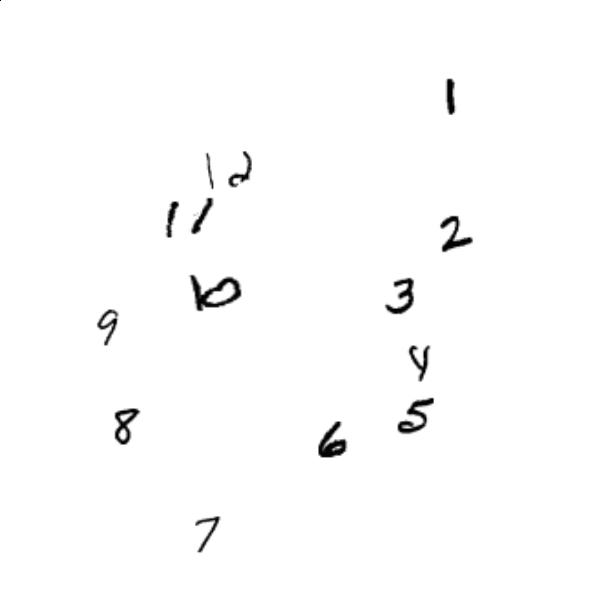 1
12
11
2
10
3
9
4
8
5
6
7